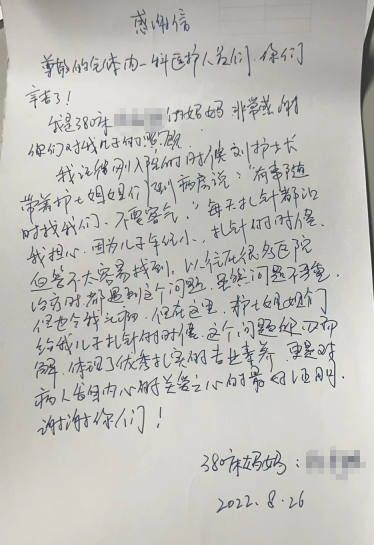 感谢信
尊敬的全体内一科医护人员们，你们
辛苦了！
我是380床 的妈妈 非常感谢
你们对我儿子的照顾。
我记得刚入院的时候刘护士长
带着护士姐姐们到病房说：“有事随
时找我们，不要客气。”每天扎针都让
我担心，因为儿子年纪小，扎针的时候，
血管不太容易找到，以往在很多医院
治疗时都遇到这个问题，虽然问题不
但也令我 但在这里，护士姐姐们
给我儿子扎针的时候，这个问题 迎刃而
解，体现了优秀扎实的专业素养，更是对
病人发自内心的关爱之心的最好证明。
谢谢你们！
380床妈妈：
2022.8.26